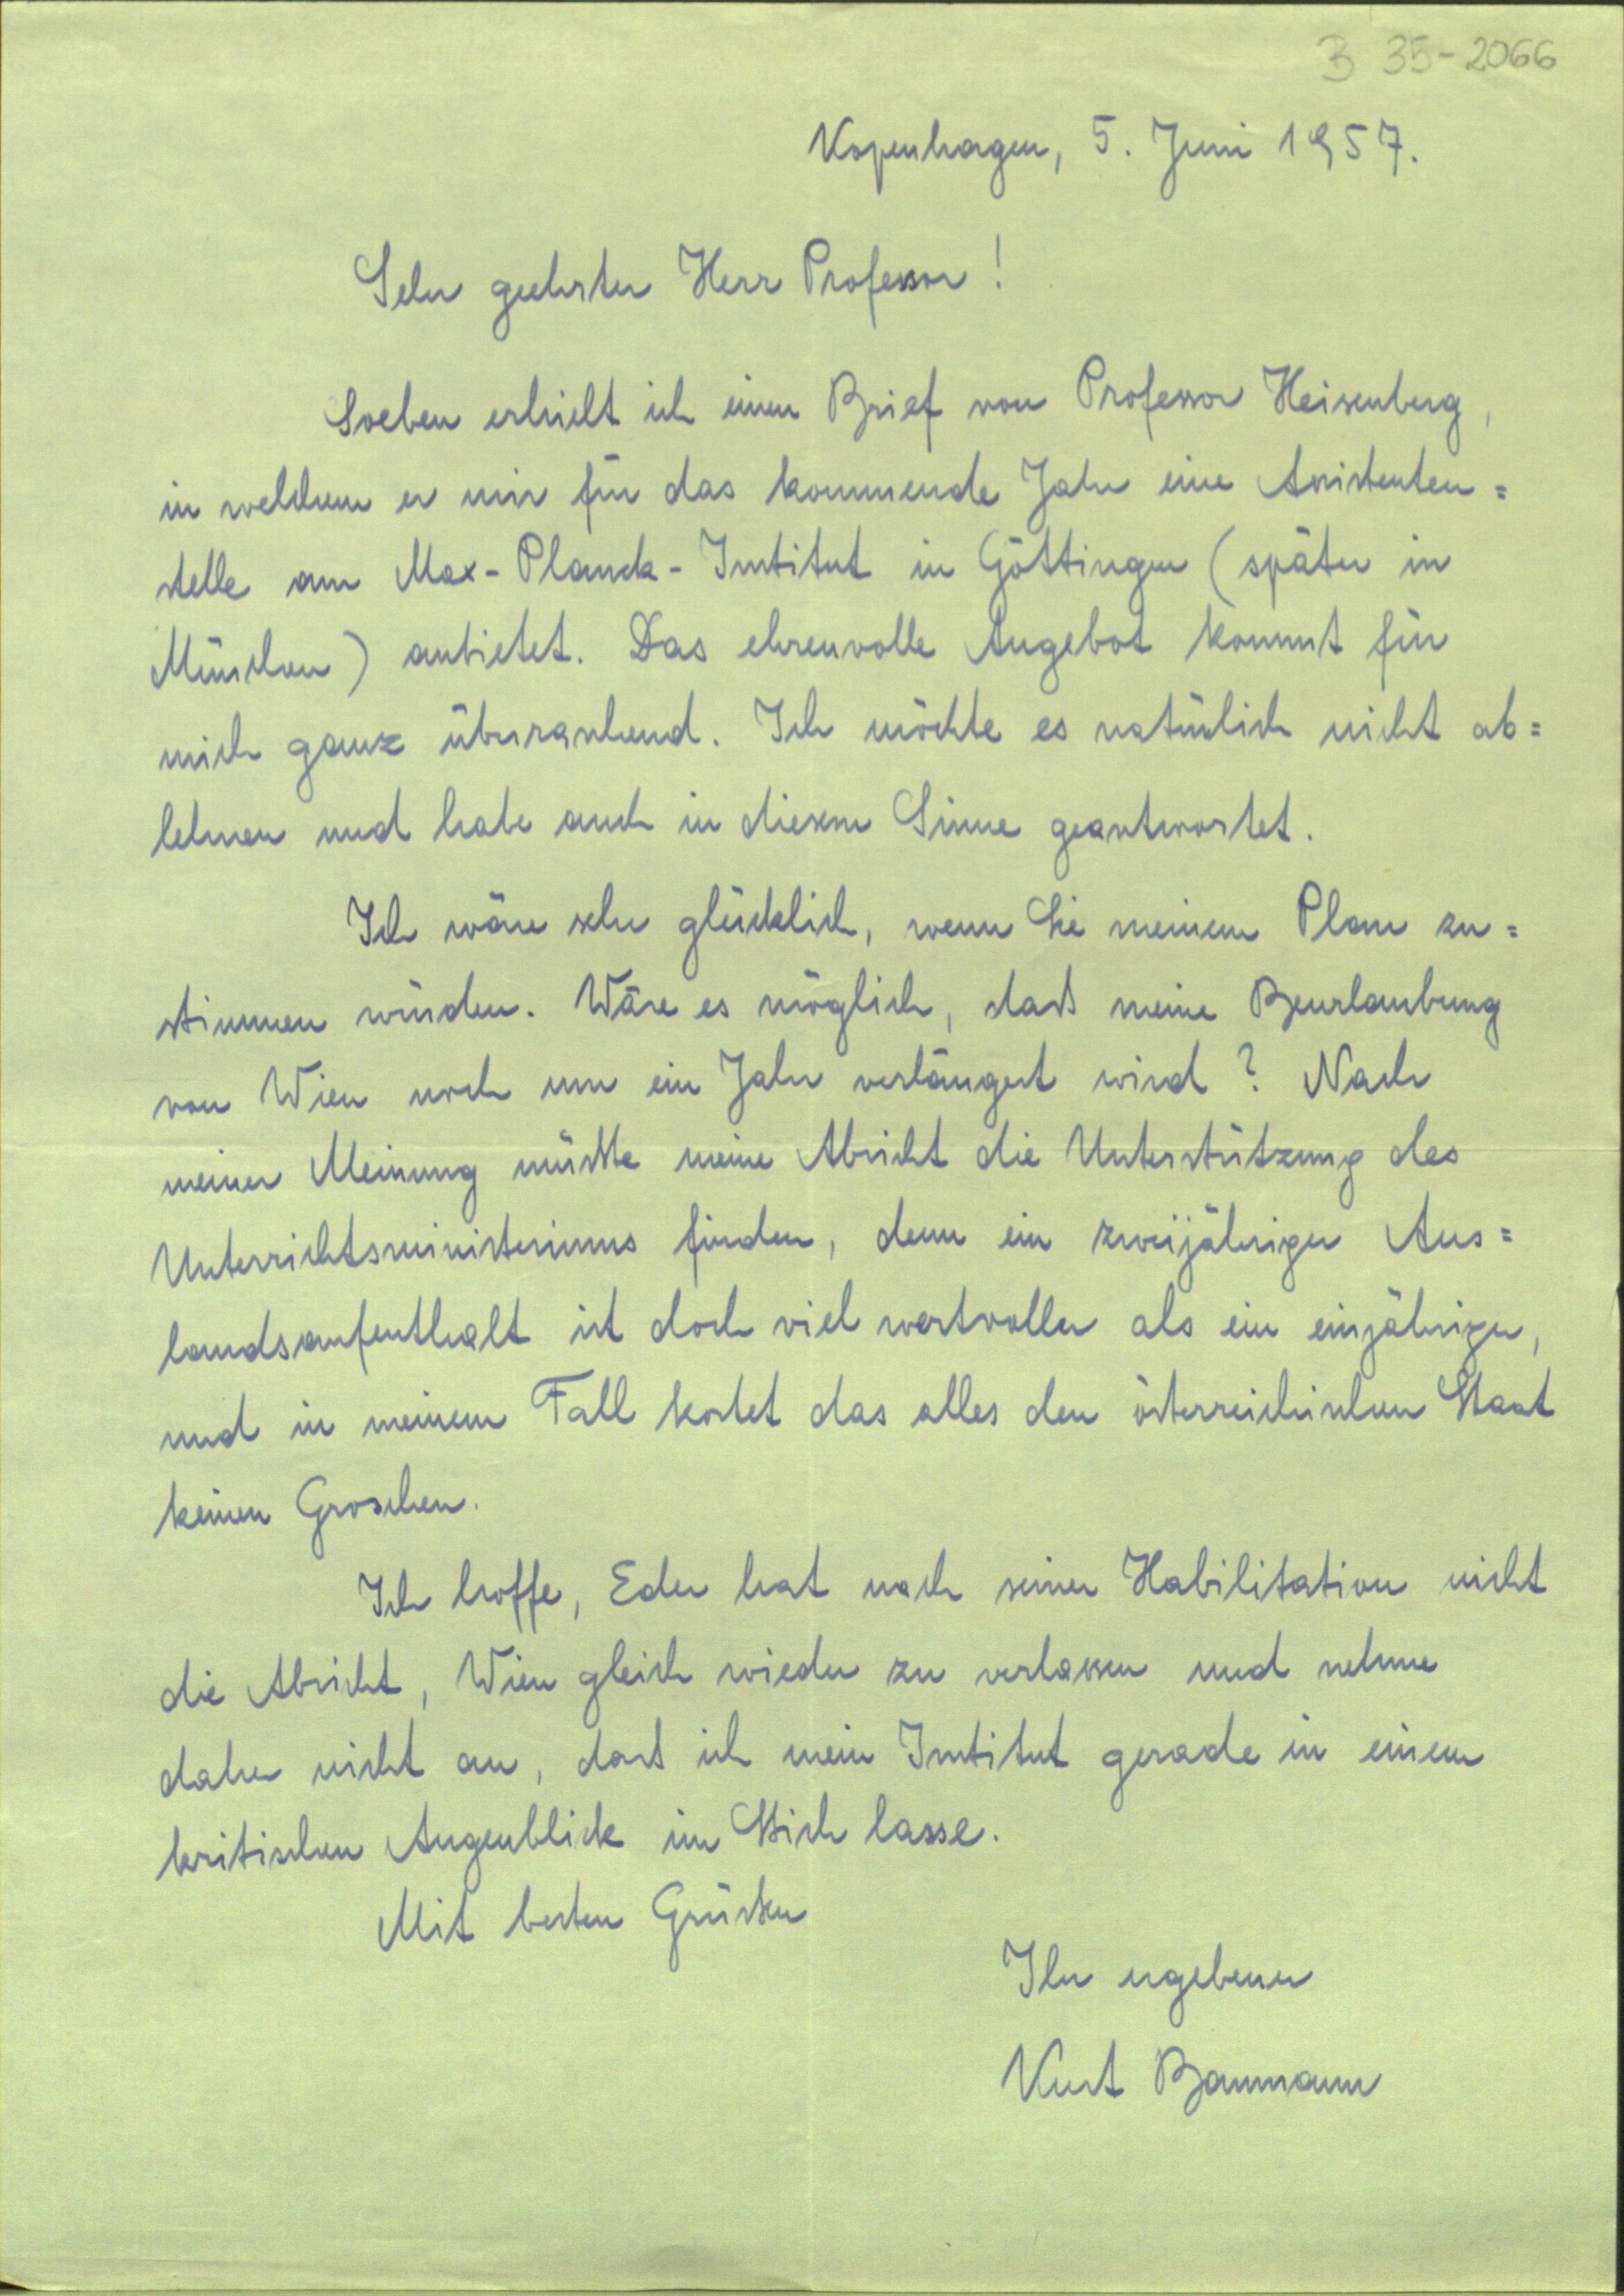 B 35-2066
Kopenhagen, 5. Juni 1957.
Sehr geehrter Herr Professor!
Soeben erhielt ich einen Brief von Professor Heisenberg,
in welchem er mir für das kommende Jahr eine Assistenten=
stelle am Max-Planck-Institut in Göttingen (später in
München) anbietet. Das ehrenvolle Angebot kommt für
mich ganz überraschend. Ich möchte es natürlich nicht ab=
lehnen und habe auch in diesem Sinne geantwortet.
Ich wäre sehr glücklich, wenn Sie meinem Plan zu=
stimmen würden. Wäre es möglich, daß meine Beurlaubung
von Wien noch um ein Jahr verlängert wird? Nach
meiner Meinung müßte meine Absicht die Unterstützung des
Unterrichtsministeriums finden, denn ein zweijähriger Aus=
landsaufenthalt ist doch viel wertvoller als ein einjähriger,
und in meinem Fall kostet das alles den österreichischen Staat
keinen Groschen.
Ich hoffe, Eder hat nach seiner Habilitation nicht
die Absicht, Wien gleich wieder zu verlassen und nehme
daher nicht an, daß ich mein Institut gerade in einem
kritischen Augenblick im Stich lasse.
Mit besten Grüßen
Ihr ergebener
Kurt Baumann